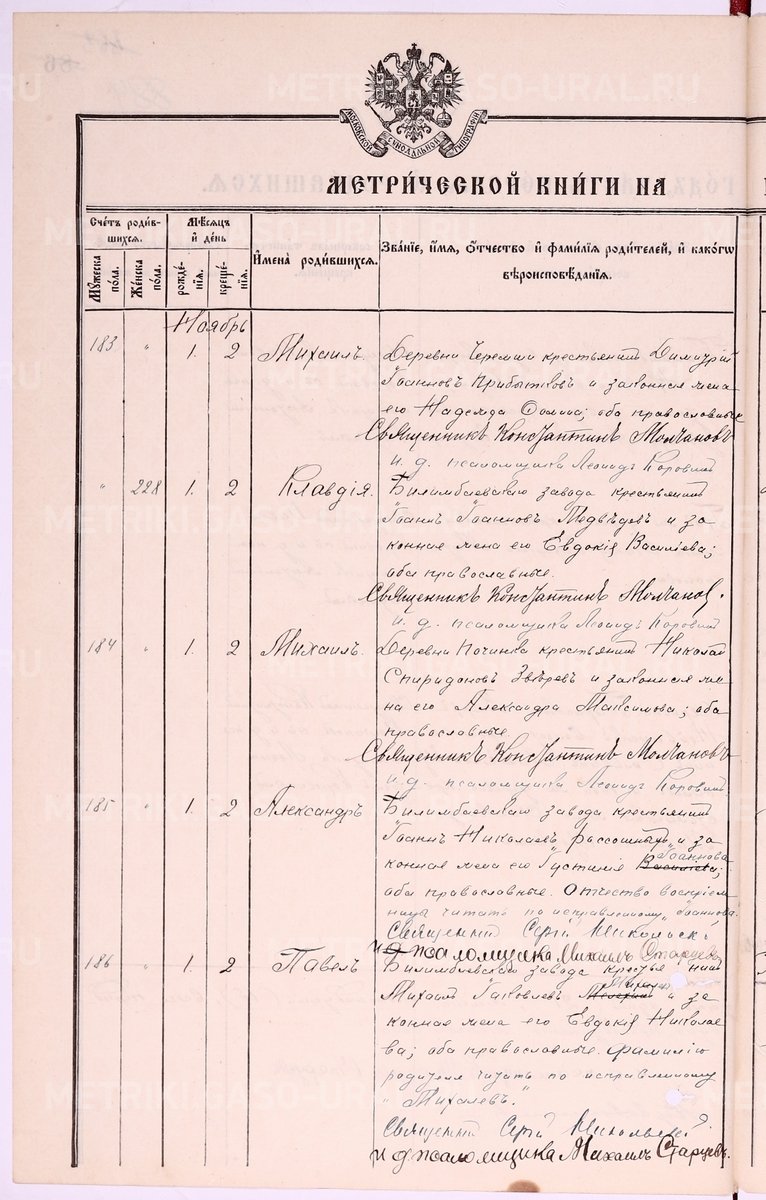 МОСКОВСКОЙ СѴНОДАЛЬНОЙ ТИПОГРАФІИ
МЕТРИ́ЧЕСКОЙ КНИ́ГИ НА
Сче́тъ роди́в-
шихся.
Мѣ́сяцъ
и҆ де́нь
И҆мена̀ роди́вшихся.
Зва́ніе, и҆́мя, ѻ҆́тчество и҆ фами́лїя роди́телей, и҆ како́гѡ
вѣроисповѣ́данїя.
Мꙋ́жеска по́ла.
Же́нска по́ла.
рожде́-нїя.
креще́-нїя.
Ноябрь
183 " 1. 2 Михаилъ. Деревни Черемши крестьянинъ Димитрій
Іоанновъ Прибытковъ и законная жена
его Надежда Ѳомина; оба православные
Священникъ Константинъ Молчановъ
и. д. псаломщика Леонидъ Коровинъ
" 228 1. 2 Клавдія. Билимбаевскаго завода крестьянинъ
Іоаннъ Іоанновъ Медвѣдевъ и за
конная жена его Евдокія Василіева;
оба православные.
Священникъ Константинъ Молчановъ.
и. д. псаломщика Леонидъ Коровинъ
184 " 1. 2 Михаилъ. Деревни Починка крестьянинъ Николай
Спиридоновъ Звѣревъ и законная же
на его Александра Максимова; оба
православные.
Священникъ Константинъ Молчановъ
и. д. псаломщика Леонидъ Коровинъ
185 " 1. 2 Александръ Билимбаевскаго завода крестьянинъ
Іоаннъ Николаевъ и за
конная жена его Іустинія Василіева; Іоаннова
оба православные. Отчество воспріем
ницы читать по исправленному "Іоаннова."
Священникъ Сергій Никольскій
и д псаломщика Михаилъ Старцевъ
186 " 1. 2 Павелъ Билимбаевскаго завода крестьянинъ
Михаилъ Іаковлевъ и за
конная жена его Евдокія Николае
ва; оба православные. Фамилію
родителя читать по исправленному
"Михалевъ."
Священникъ Сергій Никольскій
и д псаломщика Михаилъ Старцевъ.
METRIKI.GASO-URAL.RU